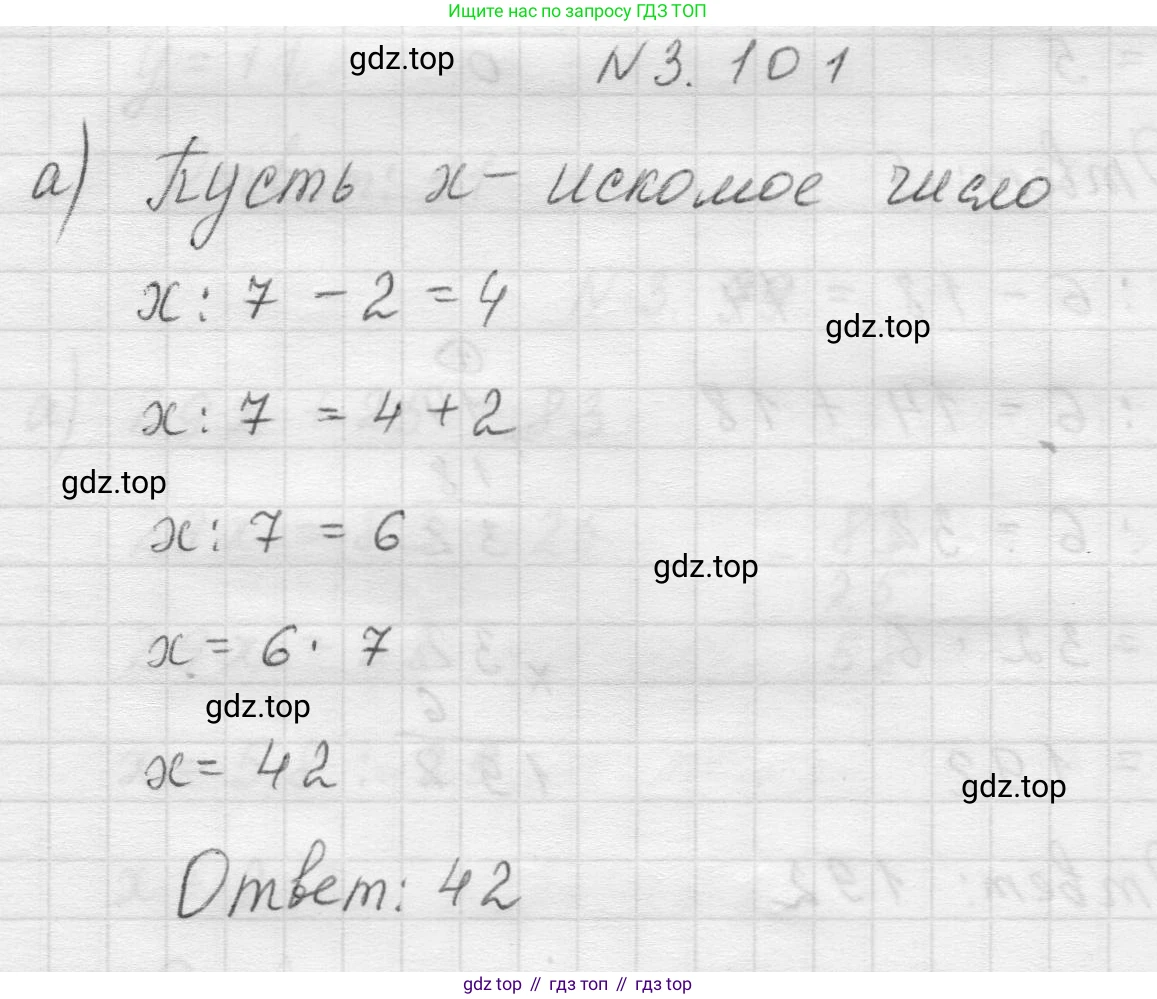 Ищите нас по запросу ГДЗ ТОП
gdz.top
N 3. 101
а) Пусть x - искомое число
x : 7 - 2 = 4
gdz.top
x : 7 = 4 + 2
gdz.top
x : 7 = 6
gdz.top
x = 6 · 7
gdz.top
x = 42
gdz.top
Ответ: 42
gdz top // гдз топ // гдз top